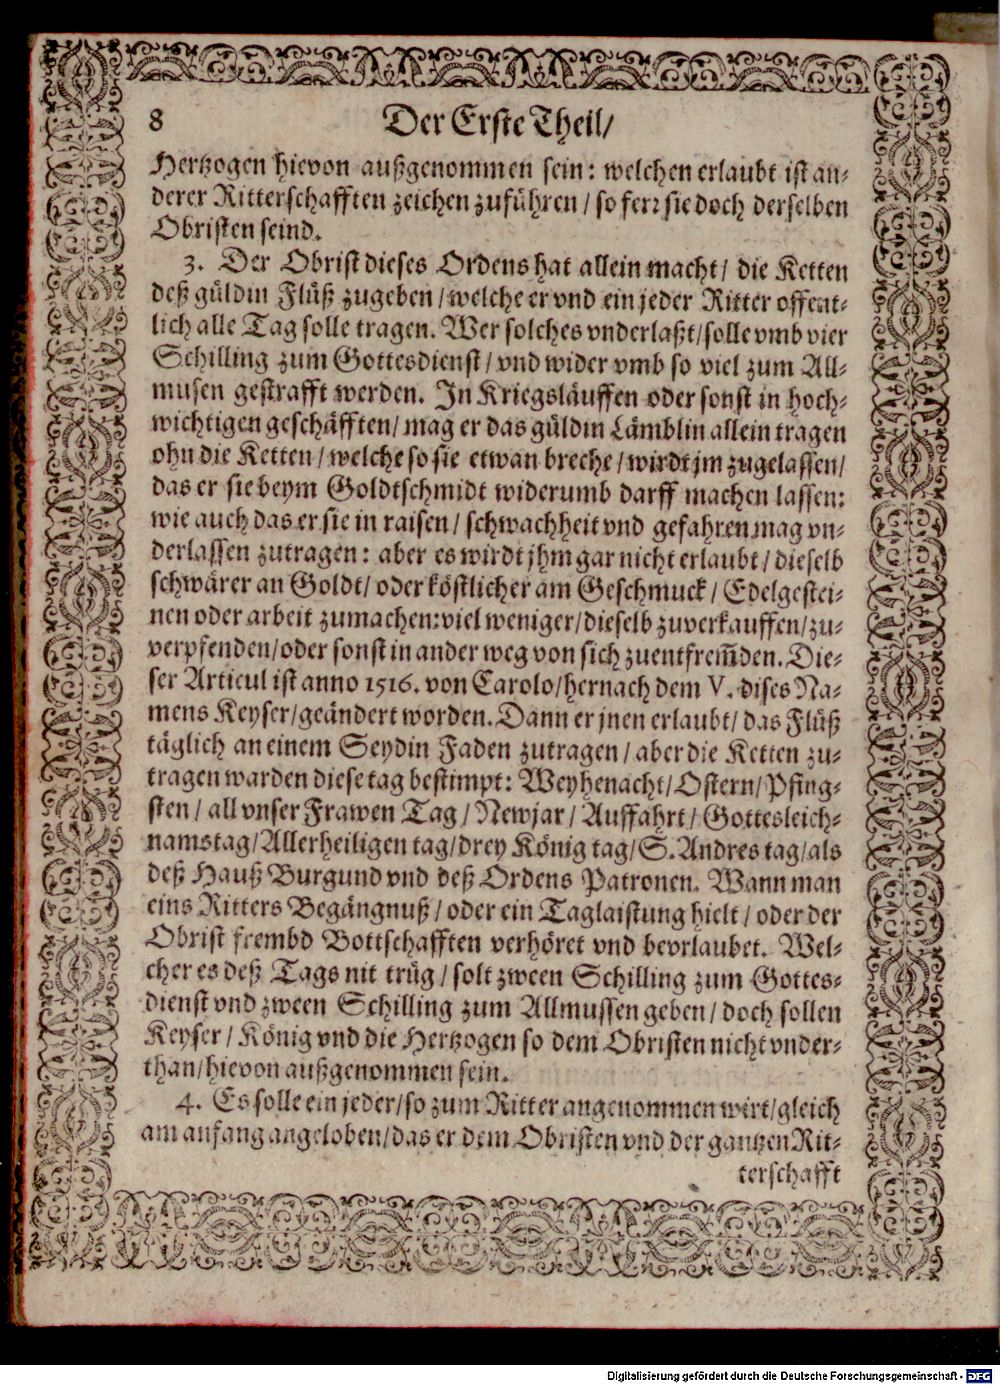 8 Der Erste Theil/
Hertzogen hievon außgenommen sein: welchen erlaubt ist an-
derer Ritterschafften zeichen zuführen / so ferr sie doch derselben
Obristen seind.
3. Der Obrist dieses Ordens hat allein macht / die Ketten
deß güldin Flüß zugeben / welche er vnd ein jeder Ritter offent-
lich alle Tag solle tragen. Wer solches vnderlaßt / solle vmb vier
Schilling zum Gottesdienst / vnd wider vmb so viel zum All-
musen gestrafft werden. In Kriegsläuffen oder sonst in hoch-
wichtigen geschäfften / mag er das güldin Lämblin allein tragen
ohn die Ketten / welche so sie etwan breche / wirdt jm zugelassen /
das er sie beym Goldtschmidt widerumb darff machen lassen:
wie auch das er sie in raisen / schwachheit vnd gefahren mag vn-
derlassen zutragen: aber es wirdt jhm gar nicht erlaubt / dieselb
schwärer an Goldt / oder köstlicher am Geschmuck / Edelgestei-
nen oder arbeit zumachen: viel weniger / dieselb zuverkauffen / zu-
verpfenden / oder sonst in ander weg von sich zuentfrem̃den. Die-
ser Articul ist anno 1516. von Carolo / hernach dem V. dises Na-
mens Keyser / geändert worden. Dann er jnen erlaubt / das Flüß
täglich an einem Seydin Faden zutragen / aber die Ketten zu-
tragen warden diese tag bestimpt: Weyhenacht / Ostern / Pfing-
sten / all vnser Frawen Tag / Newjar / Auffahrt / Gottesleich-
namstag / Allerheiligen tag / drey König tag / S. Andres tag / als
deß Hauß Burgund vnd deß Ordens Patronen. Wann man
eins Ritters Begängnuß / oder ein Taglaistung hielt / oder der
Obrist frembd Bottschafften verhöret vnd bevrlaubet. Wel-
cher es deß Tags nit trüg / solt zween Schilling zum Gottes-
dienst vnd zween Schilling zum Allmussen geben / doch sollen
Keyser / König vnd die Hertzogen so dem Obristen nicht vnder-
than / hievon außgenommen sein.
4. Es solle ein jeder / so zum Ritter angenommen wirt / gleich
am anfang angeloben / das er dem Obristen vnd der gantzen Rit-
terschafft
Digitalisierung gefördert durch die Deutsche Forschungsgemeinschaft - DFG